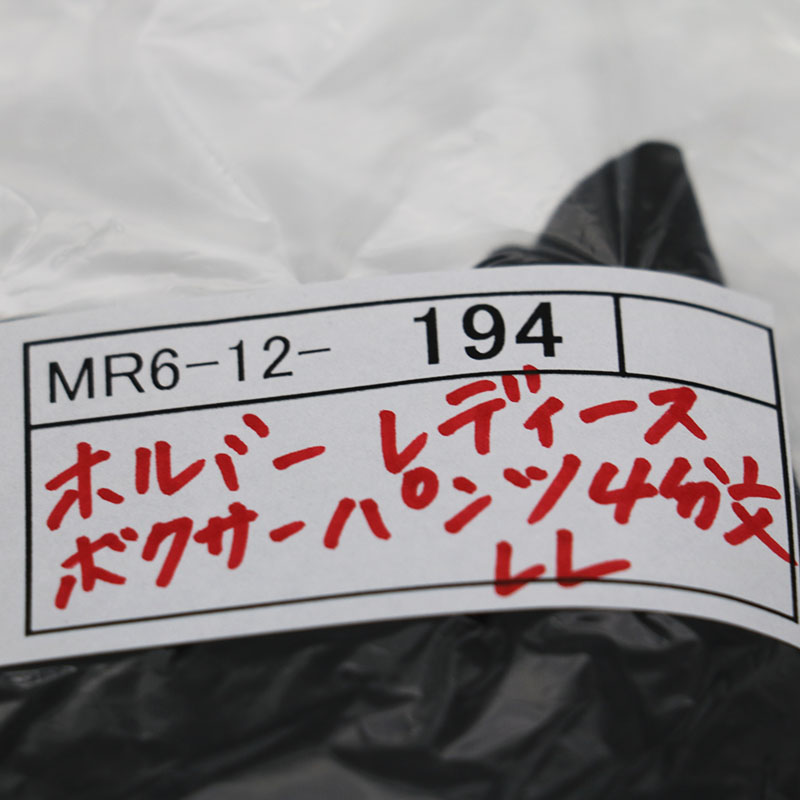 MR6-12- 194
ホルバー レディース
ボクサーパンツ4分丈
LL